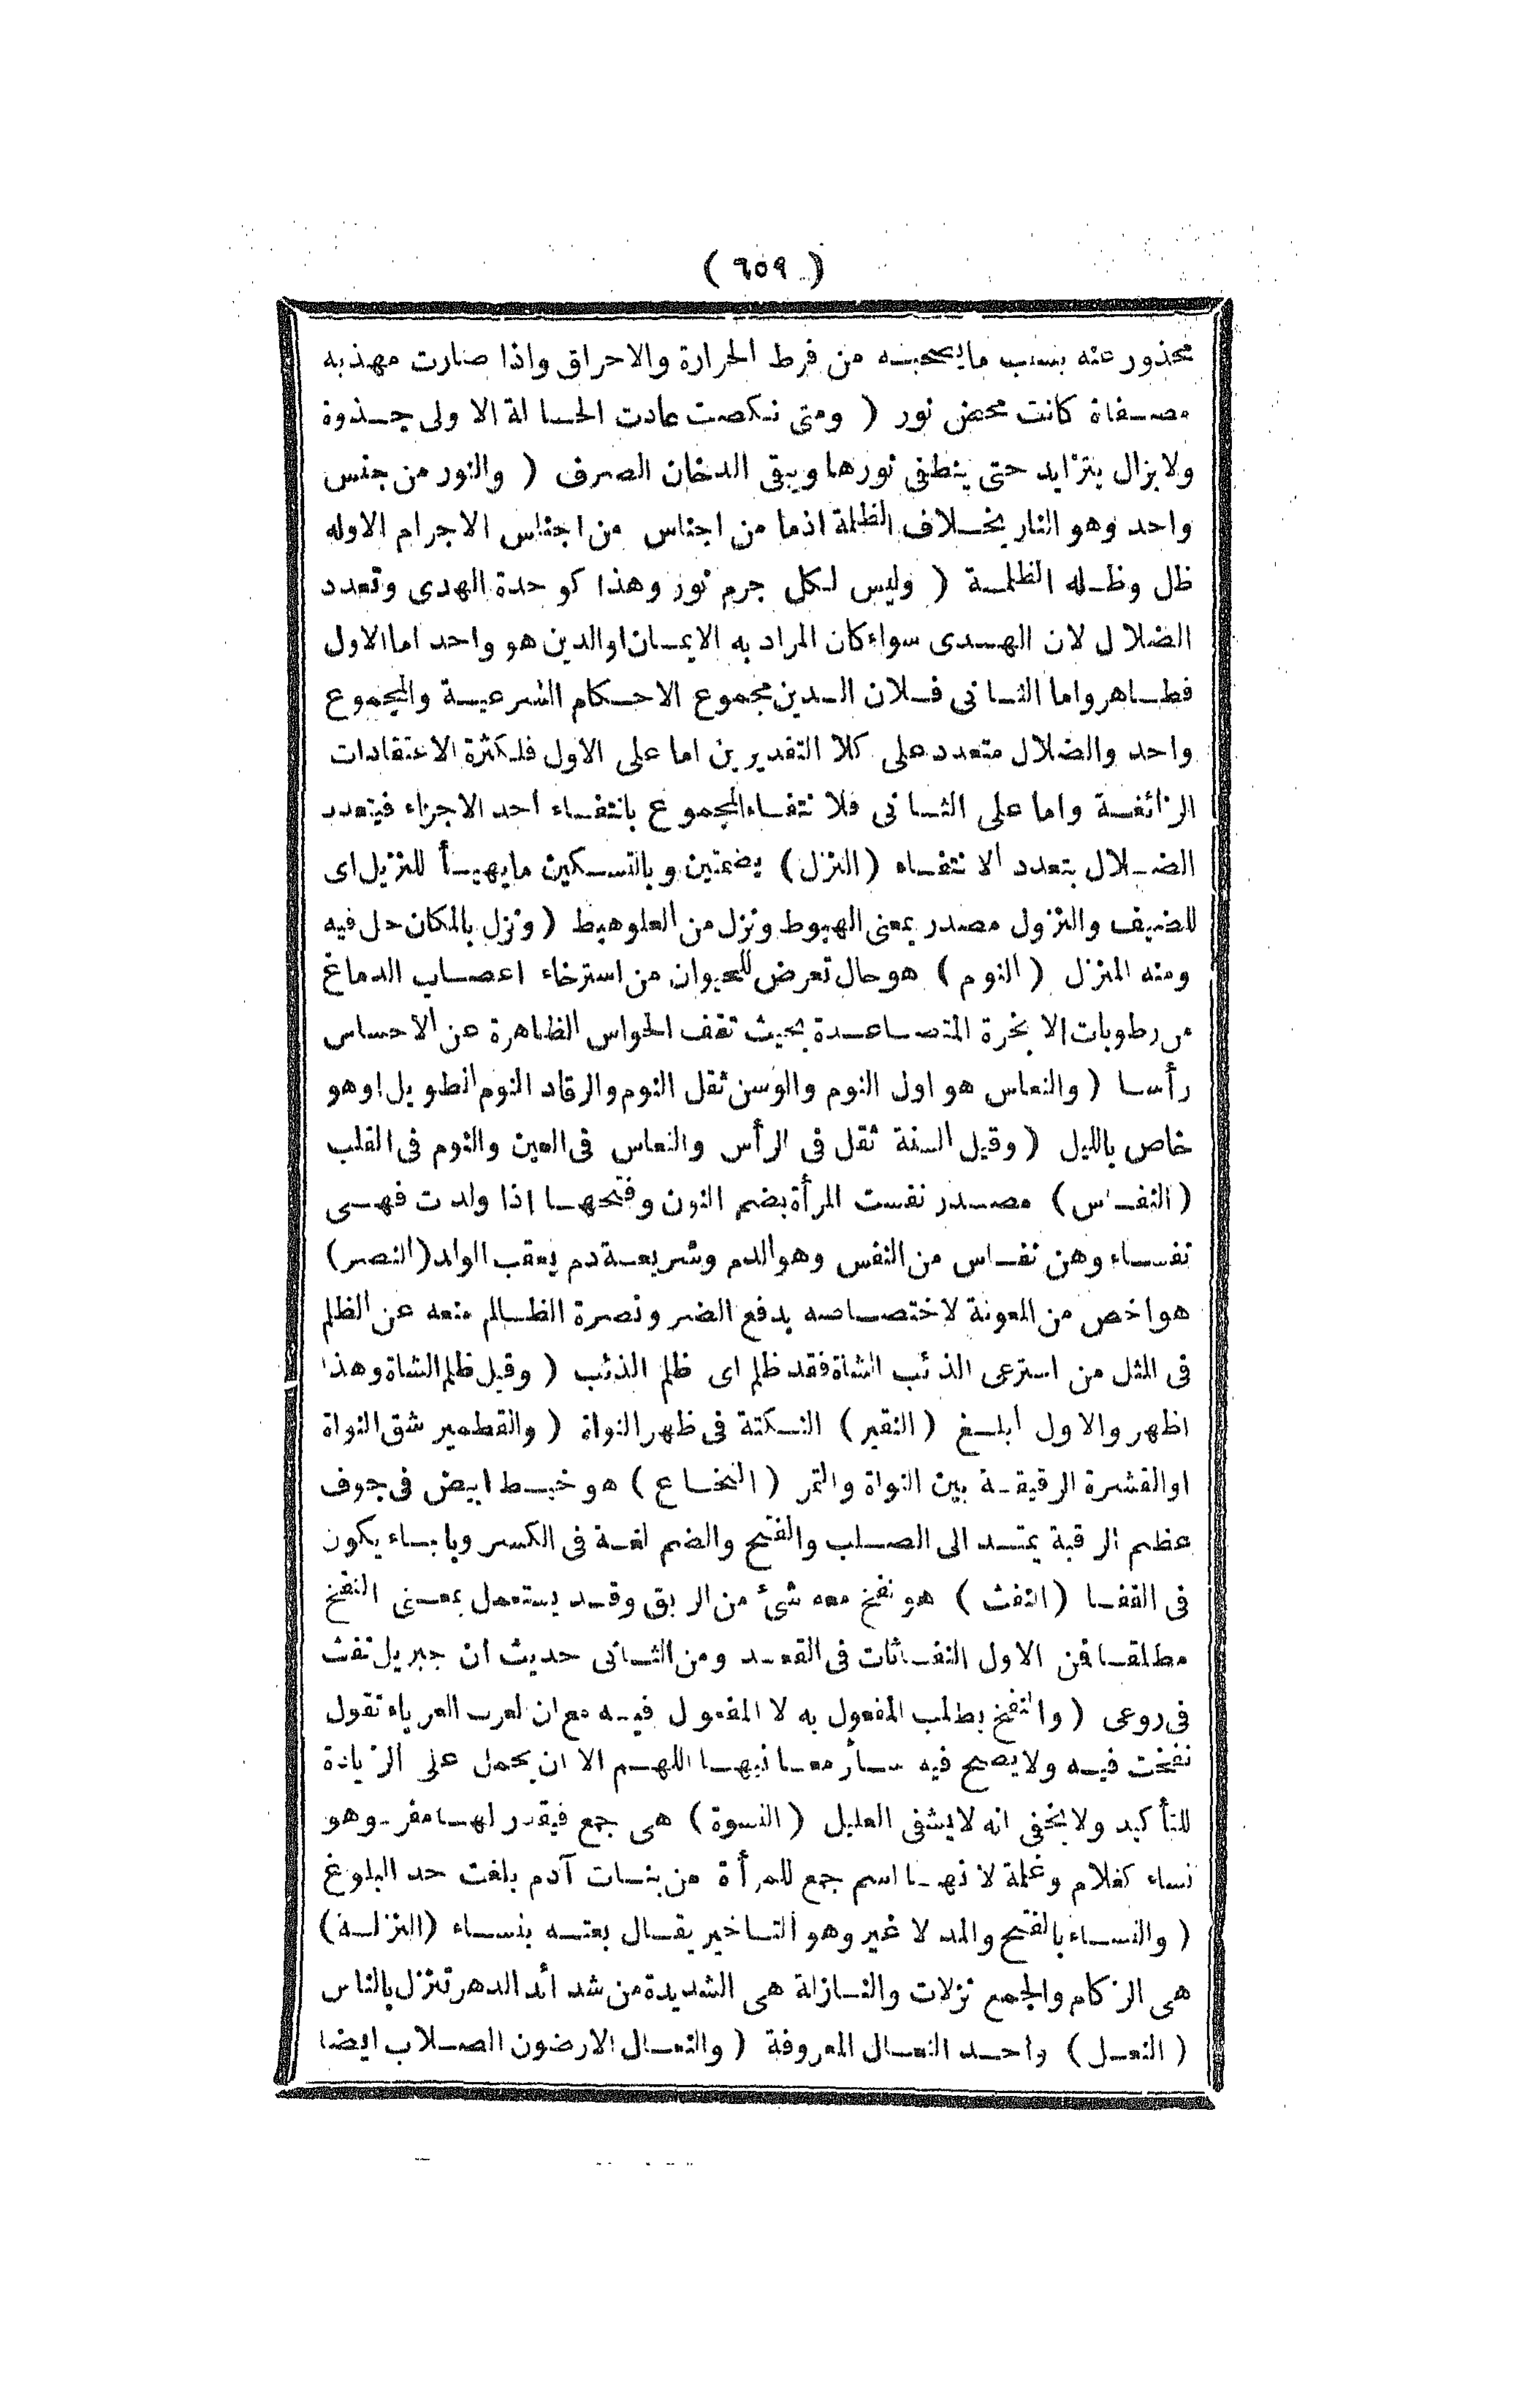 ( ٦٥٩ )
محذور عنه بسبب مايصحبه من فرط الحرارة والاحراق واذا صارت مهذبه
مصفاة كانت محض نور ( ومتى نكصت عادت الحسالة الاولى جذوة
ولايزال يتزايد حتى ينطفى نورها ويبقى الدخان الصرف ( والنور من جنس
واحد وهو النار بخلاف الظلمة اذما من اجناس من اجناس الاجرام الاوله
ظل وظله الظلمة ( وليس لكل جرم نور وهذا كوحدة الهدى وتعدد
الضلال لان الهدى سواءكان المراد به الايمان اوالدين هو واحد اماالاول
فظاهر واما الثانى فلان الدين مجموع الاحكام الشرعية والمجموع
واحد والضلال متعدد على كلا التقديرين اما على الاول فلكثرة الاعتقادات
الزائغة واما على الثانى فلانتفاء المجموع بانتفاء احد الاجزاء فيتعدد
الضلال بتعدد الانتفاء (النزل) بضمتين وبالتسكين مايهيأ للنزيل اى
للضيف والنزول مصدر بمعنى الهبوط ونزل من العلو هبط ( ونزل بالمكان حل فيه
ومنه المنزل ( النوم ) هو حال تعرض للحيوان من استرخاء اعصاب الدماغ
من رطوبات الابخرة المتصاعدة بحيث تقف الحواس الظاهرة عن الاحساس
رأسا ( والنعاس هو اول النوم والوسن ثقل النوم والرقاد النوم الطويل اوهو
خاص بالليل ( وقيل السنة ثقل فى الرأس والنعاس فى العين والنوم فى القلب
( النفاس ) مصدر نفست المرأة بضم النون وفتحها اذا ولدت فهى
نفساء وهن نفاس من النفس وهو الدم وشريعة دم يعقب الولد (النصر)
هواخص من المعونة لاختصاصه بدفع الضر ونصرة الظالم منعه عن الظلم
فى المثل من استرعى الذئب الشاة فقد ظلم اى ظلم الذئب ( وقيل ظلم الشاة وهذا
اظهر والاول أبلغ ( النقير ) النكتة فى ظهر النواة ( والقطمير شق النواة
اوالقشرة الرقيقة بين النواة والتمر ( النخاع ) هو خيط ابيض فى جوف
عظم الرقبة يمتد الى الصلب والفتح والضم لغة فى الكسر وبالباء يكون
فى القفا ( النفث ) هو نفخ معه شئ من الريق وقد يستعمل بمعنى النفخ
مطلقا فمن الاول النفاثات فى العقد ومن الثانى حديث ان جبريل نفث
فى روعى ( والنفخ يطلب المفعول به لا المفعول فيه مع ان لعرب العرباء تقول
نفخت فيه ولايصح فيه سائر معانيها اللهم الا ان يحمل على الزيادة
للتأكيد ولايخفى انه لايشفى العليل ( النسوة ) هى جمع فيقدر لها مفرد وهو
نساء كغلام وغلمة لانها اسم جمع للمرأة من بنات آدم بلغت حد البلوغ
( والنساء بالفتح والمد لا غير وهو التاخير يقال بعته بنساء (النزلة)
هى الزكام والجمع نزلات والنازلة هى الشديدة من شدائد الدهر تنزل بالناس
( النعل ) واحد النعال المعروفة ( والنعال الارضون الصلاب ايضا